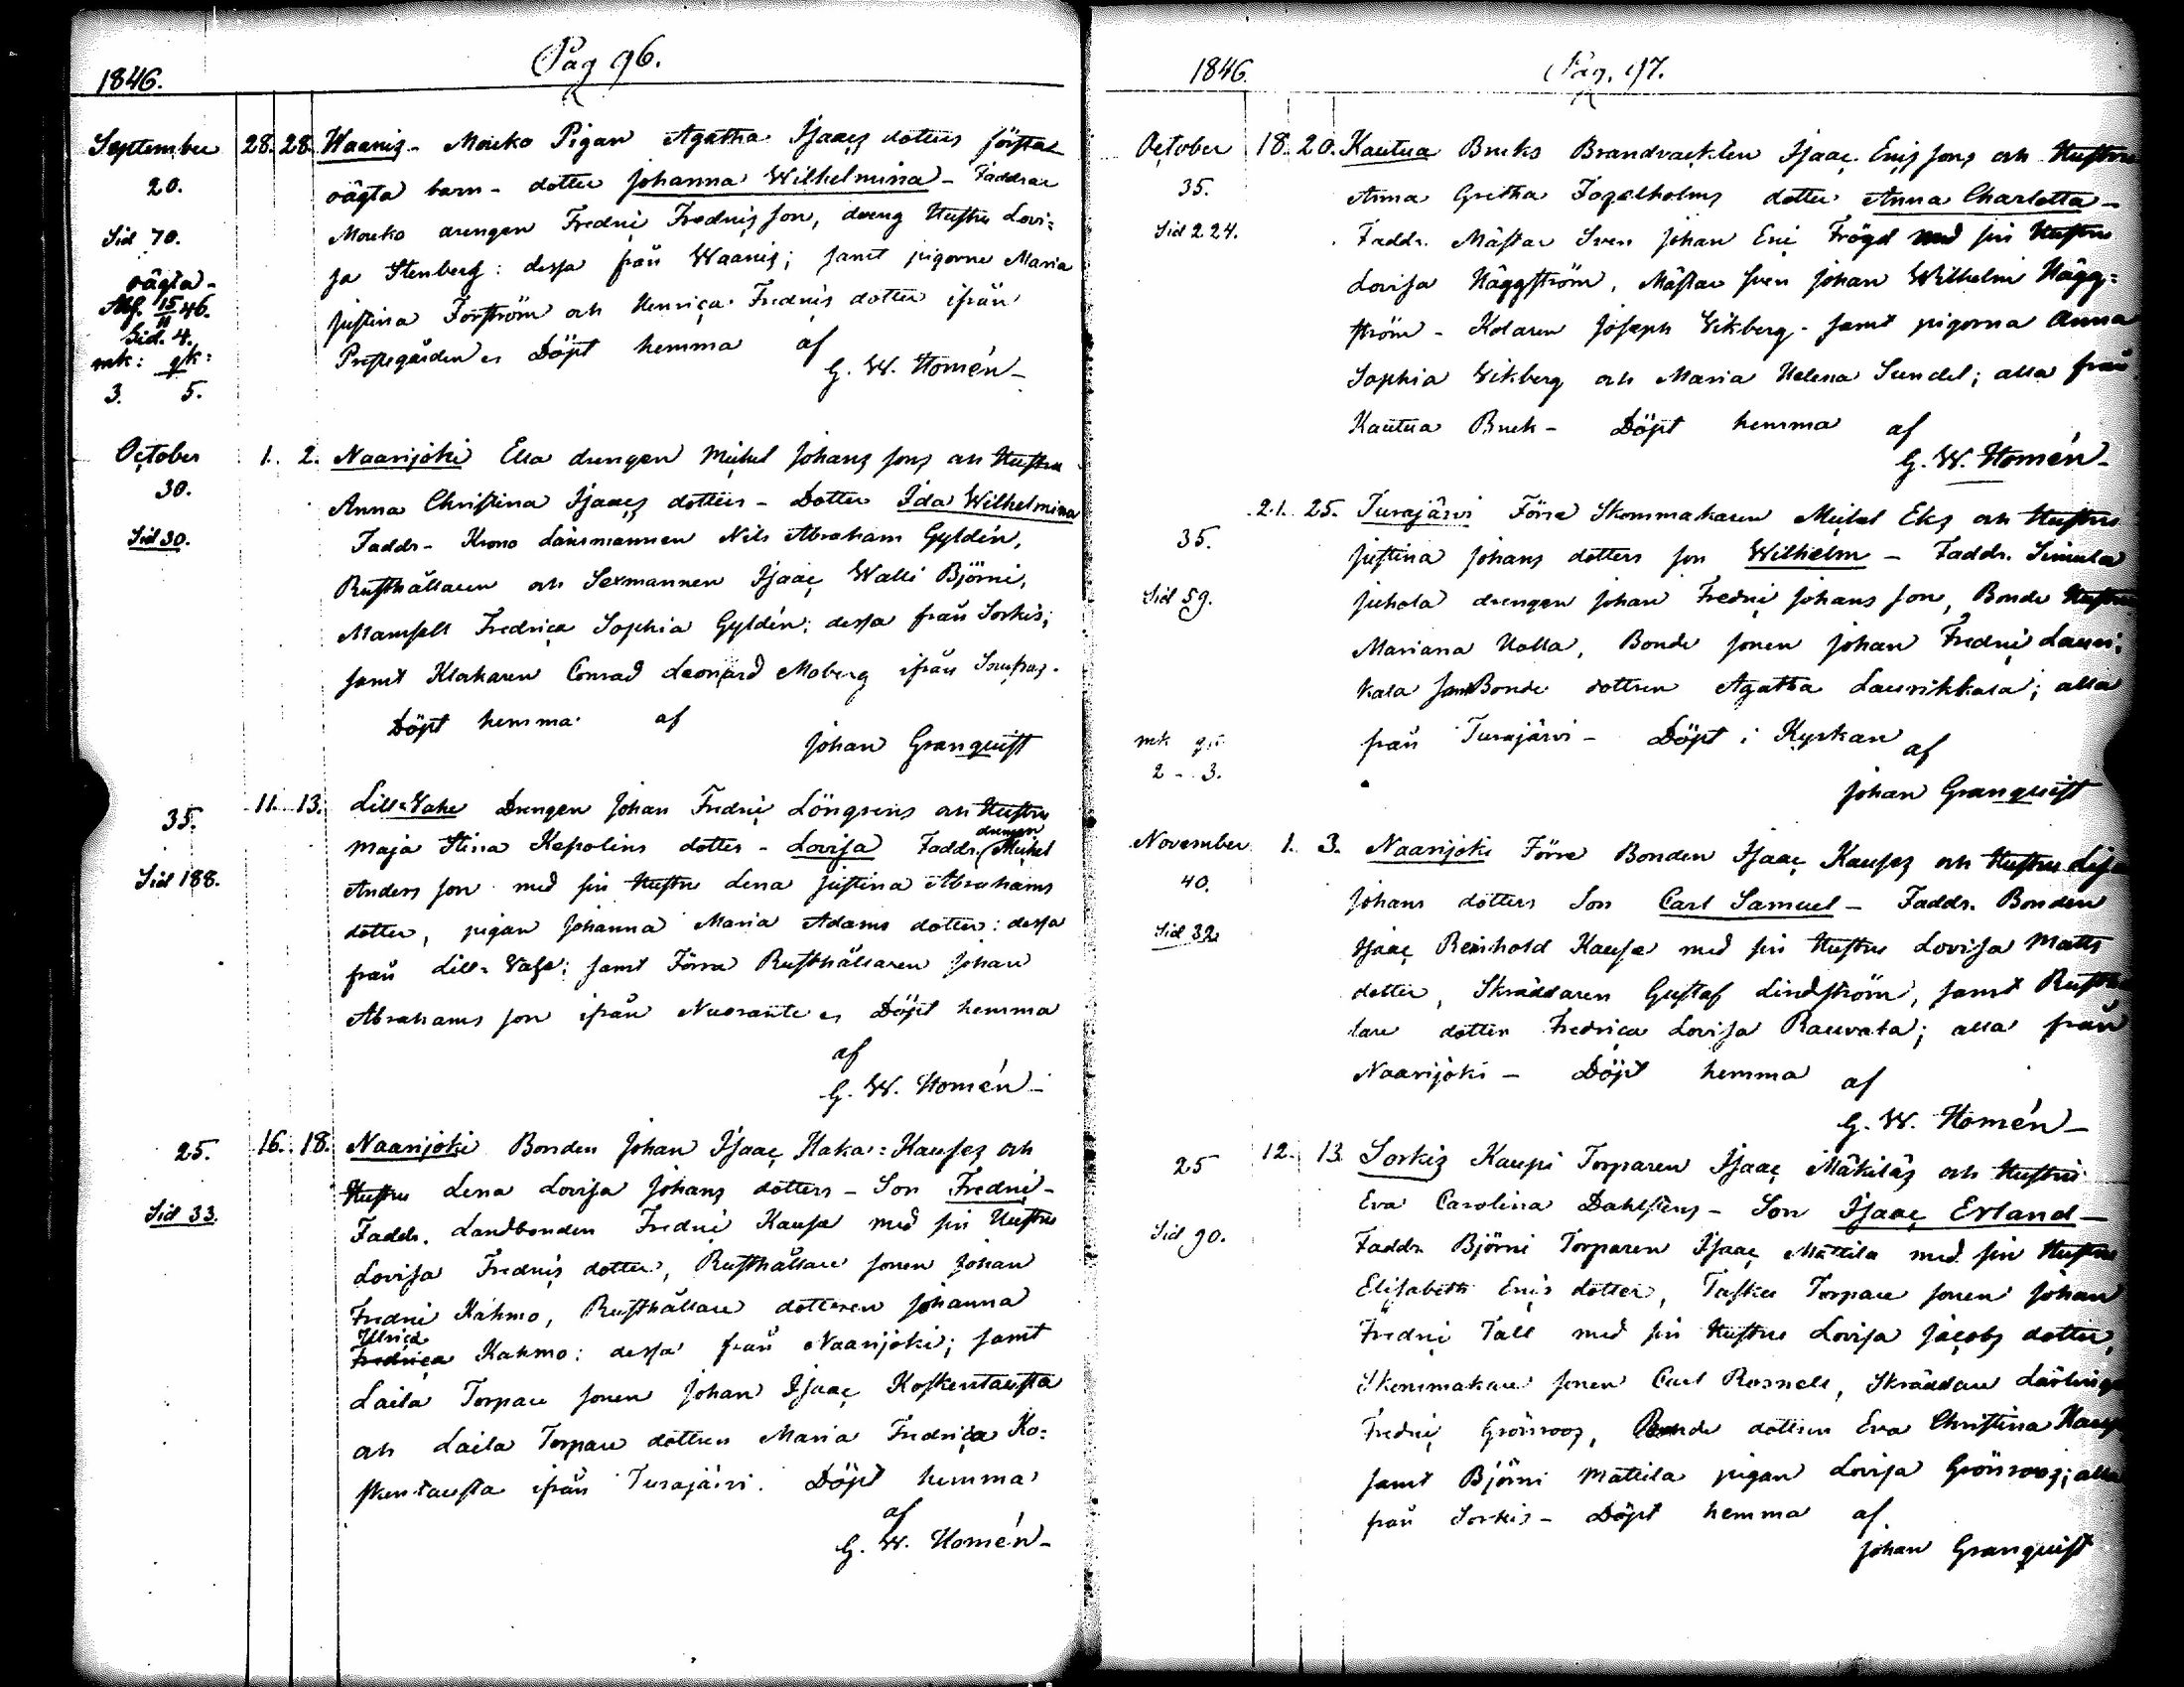 1846.
Pag 96.
September 28. 28. Waanis - Mouko Pigan Agatha Isaacs dotters första
20. oägta barn - dotter Johanna Wilhelmina - Faddrar
Sid 70. Mouko drengen Fredric Fredrics son, dreng Hustru Lovi=
oägta - sa Stenberg: dessa från Waanis; samt pigorne Maria
15/11 46. Justina Forström och Henrica Fredrics dotter ifrån
Sid. 4.
mk: qk: Prestgården Döpt hemma af
3. 5. G. W. Homén -
October 1. 2. Naarijoki Ella drengen Michel Johans sons och Hustru
30. Anna Christina Isaacs dotters - Dotter Ida Wilhelmina
Sid 30. Faddr - Krono Länsmannen Nils Abraham Gyldén,
Rusthållaren och Sexmannen Isaac Walli Björni,
Mamsell Fredrica Sophia Gyldén: dessa från Sorkis;
samt Klokaren Conrad Leonard Moberg ifrån
Döpt hemma af
Johan Granquist
35. 11. 13. Lill=Vahe Drengen Johan Fredric Löngrens och Hustru
drengen
Maja Stina Kepolins dotter - Lovisa Faddr. Michel
Sid 188. Anders son med sin Hustru Lena Justina Abrahams
dotter, pigan Johanna Maria Adams dotter: dessa
från Lill= Vahe; samt Förra Rusthållaren Johan
Abrahams son ifrån Döpt hemma
af
G. W. Homén -
25. 16. 18. Naarijoki Bonden Johan Isaac Haka=Kauses och
Hustru Lena Lovisa Johans dotters - Son Fredric -
Sid 33. Faddr. Landbonden Fredric Kausa med sin Hustru
Lovisa Fredrics dotter, Rusthållare sonen Johan
Fredric Kahmo, Rusthållare dotteren Johanna
Ulrica
Fredrica Kahmo: dessa från Naarijoki; samt
Laila Torpare sonen Johan Isaac Koskentausta
och Laila Torpare dottren Maria Fredrica Ko=
skentausta ifrån Turajärvi. Döpt hemma
af
G. W. Homén -
1846.
Pag. 97.
October 18. 20. Kautua Bruks Brandvackten Isaac Erics sons och Hustru
35. Anna Gretha Fogelholms dotter Anna Charlotta -
Sid 224. Faddr. Mästar Sven Johan Eric Frögd med sin Hustru
Lovisa Häggström, Mästar Sven Johan Wilhelm Hägg=
ström - Kolaren Joseph Vikberg - samt pigorna Anna
Sophia Vikberg och Maria Helena Sundel; alla från
Kautua Bruk - Döpt hemma af
G. W. Homén -
21. 25. Turajärvi Förre Skommakaren Michel Eks och Hustrus
35. Justina Johans dotters son Wilhelm - Faddr. Simula
Sid 59. Juhola drengen Johan Fredric Johans son, Bonde Hustru
Mariana Halla, Bonde sonen Johan Fredric Lauri=
kala samt Bonde dottren Agatha Laurikkala; alla
mk från Turajärvi - Döpt i Kyrkan af
2 - 3.
Johan Granquist
November 1. 3. Naarijoki Förre Bonden Isaac Kauses och Hustru Lisa
40. Johans dotters Son Carl Samuel - Faddr. Bonden
Sid 32 Isaac Reinhold Kausa med sin Hustru Lovisa Matts
dotter, Skräddaren Gustaf Lindström, samt
lare dotter Fredrica Lovisa Rauvata; alla från
Naarijoki - Döpt hemma af
G. W. Homén -
25 12. 13 Sorkis Kaupi Torparen Isaac Mäkiläs och Hustrus
Eva Carolina Dahlstens - Son Isaac Erland -
Sid 90. Faddr Björni Torparen Isaac Mattila med sin Hustru
Elisabeth Erics dotter, Tasku Torpare sonen Johan
Fredric Tall med sin Hustru Lovisa Jacobs dotter,
Skommakare sonen Carl Rosnell, Skräddare Lärlingen
Fredric Grönroos, Bonde dottren Eva Christina
samt Björni Mattila pigan Lovisa Grönroos; alla
från Sorkis - Döpt hemma af
Johan Granquist